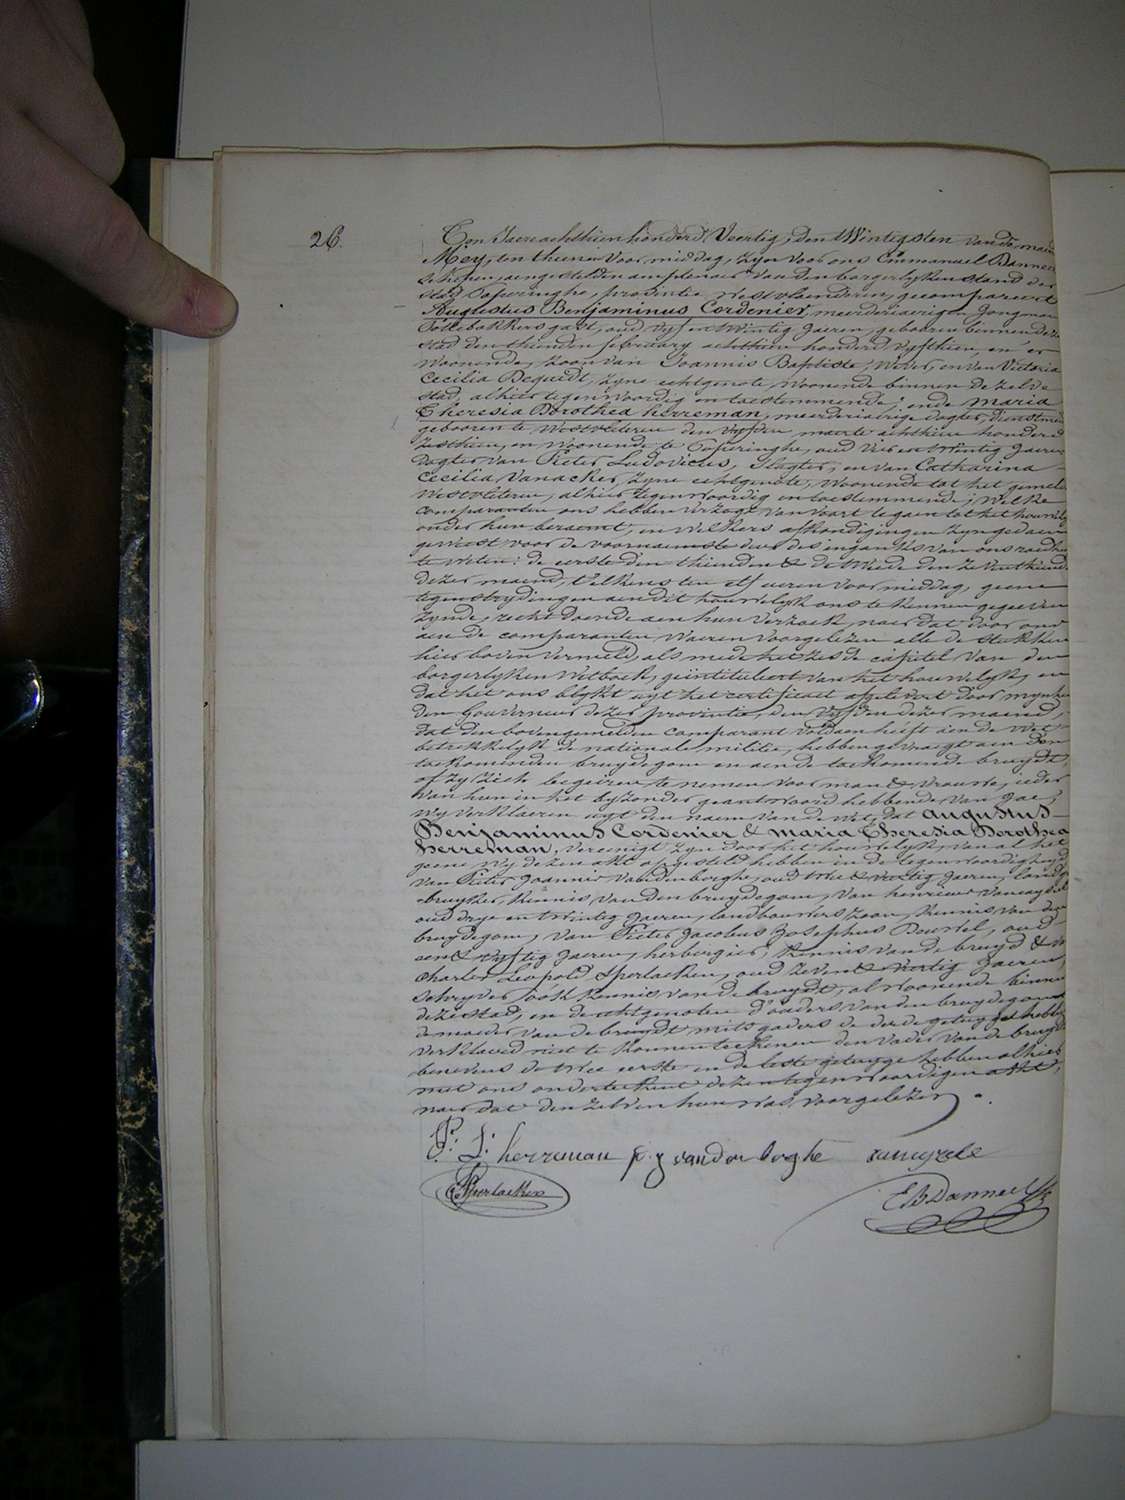 26.
Ten Jaere achthien honderd Veertig, den Twintigsten van de maend
Mey, ten thien uren Voor middag, Zijn voor ons Emmanuel Danneel
schepen, aengestelden amptenaer van den borgerlyken stand der
stad Poperinghe, provintie westvlaenderen, gecompareert
Augustus Benjaminus Cordenier, meerderjaerigen Jongman
Pottebakkers gast, oud Vyf en Twintig Jaeren, gebooren binnen deze
stad den thienden february achthien honderd vyfthien, en er
woonende, Zoon van Joannis Baptiste, Wever, en van Victoria
Cecilia Dequidt, Zyne echtgenote, Woonende binnen de zelve
stad, alhier tegenwoordig en toestemmende; ende Maria
Theresia Dorothea herreman, meerderjarige dogter, dienstmeid
gebooren te Westvleteren den Vyfden maerte achthien honderd
Zesthien, en Woonende te Poperinghe, oud Vier en Twintig Jaeren
dogter van Pieter Ludovicus, Slagter, en van Catharina
Cecilia Vanacker, Zyne echtgenote, Woonende tot het gemelde
Westvleteren, alhier tegenwoordig en toestemmende; Welke
comparanten ons hebben verzogt van voort te gaen tot het houwelyk
onder hun beraemt, en Welkers afkondigingen zyn gedaen
geweest voor de voornaemste deur des ingangs van ons raedhuis
te weten: de eerste den thienden & de tweede den zeventhienden
dezer maend, telkens ten elf ueren voor middag, geene
tegenstrydingen aen dit houwelyk ons te kennen gegeeven
zynde, recht doende aen hun verzoek, naer dat door ons
aen de comparanten, waeren voorgelezen alle de stukken
hier boven vermeld, als mede het zesde capitel van den
borgerlyken Wetboek, geintituleert van het houwelyk, en
dat het ons blykt uyt het certificaet afgelevert door mynheer
den Gouverneur dezer provintie, den Vyfden dezer maend,
dat den bovengemelden comparant voldaen heeft aen de Wet
betrekkelyk de nationale militie, hebben gevraegt aen den
toekomenden bruydegom en aen de toekomende bruydt,
of zy zich begeiren te nemen voor man & vrouwe, ieder
van hun in het byzonder geantwoord hebbende van Jae,
wy verklaeren uyt den naem van de wet, dat Augustus
Benjaminus Cordenier & Maria Theresia Dorothea
herreman, vereenigt zyn door het houwelyk, van al het
geene wy dezen akt opgesteld hebben in de tegenwoordigheyd
van Pieter Joannis Vandenberghe, oud twee & veertig Jaeren, land
bruyker, kennis van den bruydegom, van henricus vancayseele
oud drye en twintig Jaeren, landbouwers zoon, kennis van den
bruydegom, van Pieter Jacobus Josephus Roussel, oud
een & vyftig Jaeren, herbergier, kennis van de bruyd & van
Charles Leopold Sperlaeken, oud zeven & veertig Jaeren,
schryver, ook kennis van de bruydt, al woonende binnen
deze stad, en de echtgenoten d'ouders van den bruydegom
de moeder van de bruydt mits gaders de derde getuyge hebben
verklaerd niet te konnen teekenen den vader van de bruydt
benevens de twee eerste en de leste getuyge hebben alhier
met ons onderteekent dezen tegenwoordigen akt,
naer dat den zelven hun was voorgelezen
P: L: herreman p. j vandenberghe
Sperlaeken E B Danneel